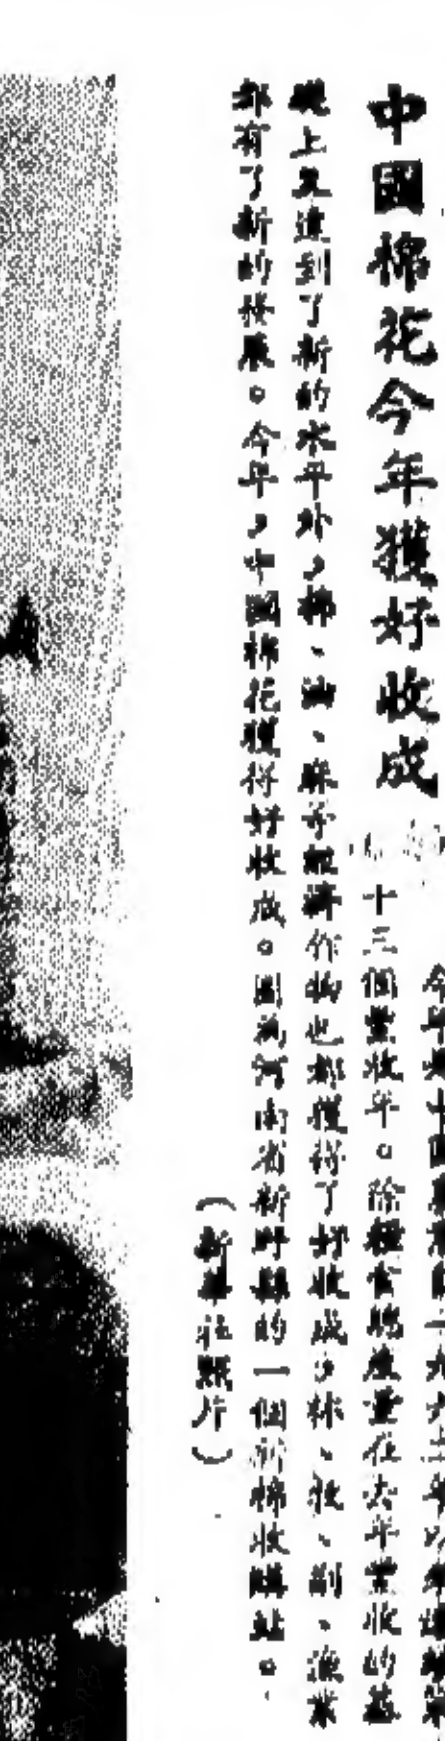 中國棉花今年獲好收成
今年是中國農業自一九六二年以來連續第
十三個豐收年。除糧食總產量在去年豐收的基
礎上又達到了新的水平外，棉、油、麻等經濟作物也都獲得了好收成，林、牧、副、漁業
都有了新的發展。今年，中國棉花獲得好收成。圖為河南省新野縣的一個新棉收購站。
（新華社照片）